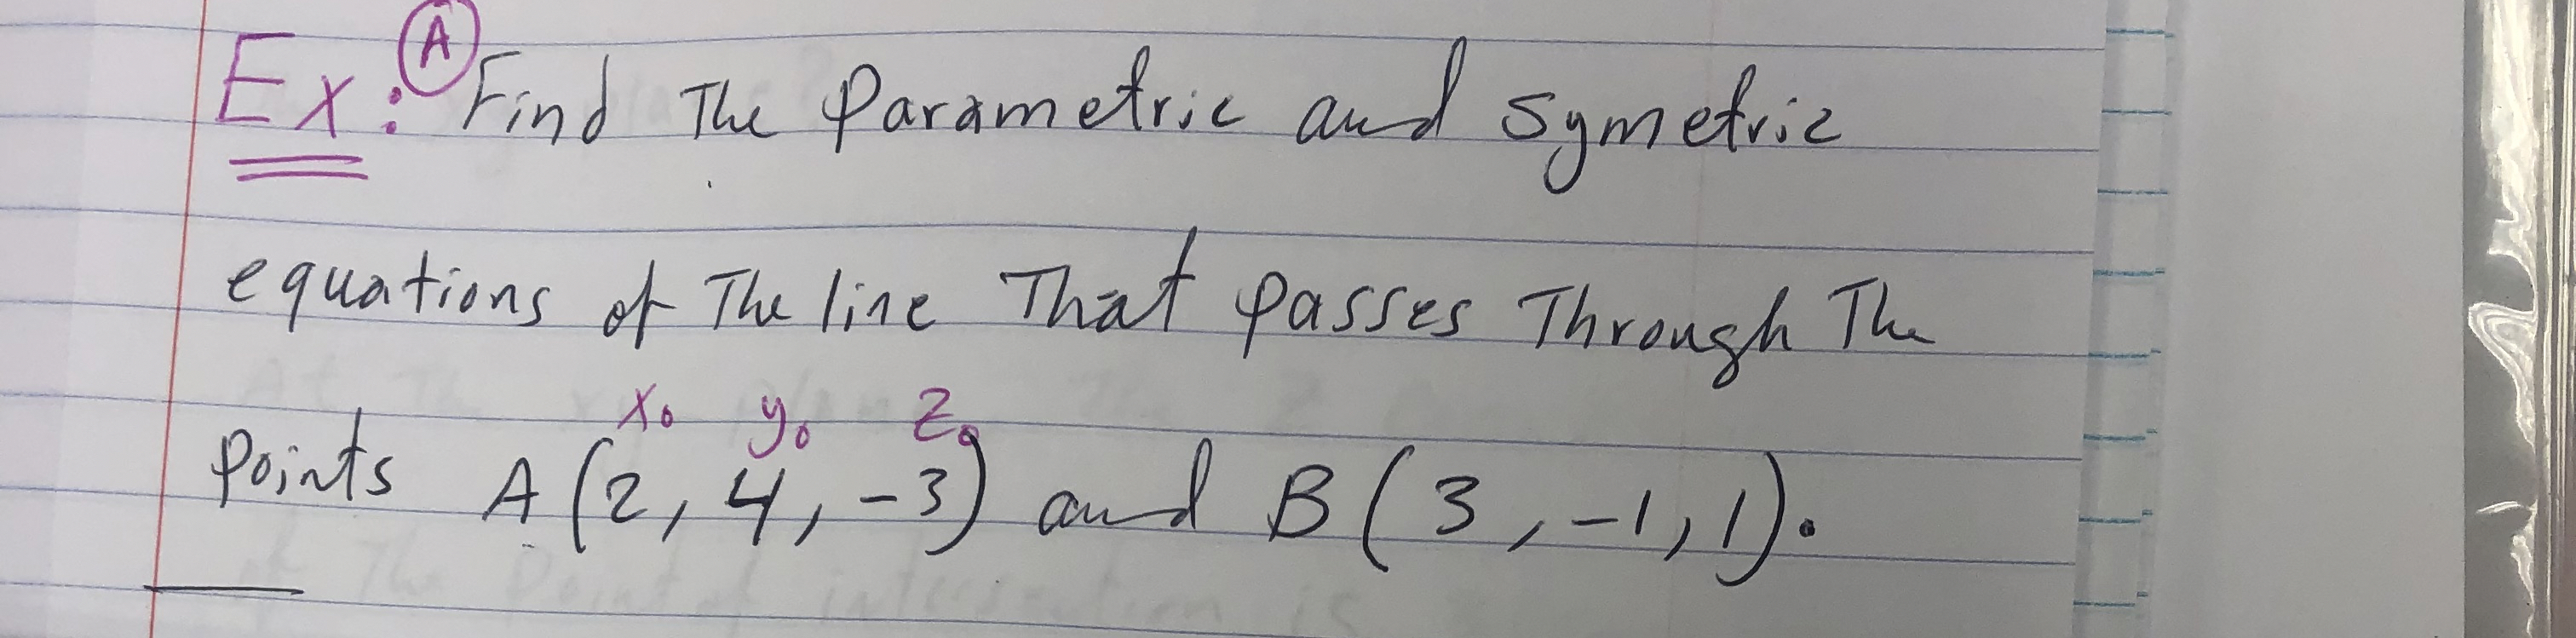 Ex: Ⓐ Find The Parametric and Symetric
equations of The line That passes Through The
x₀ y₀ z₀
Points A(2, 4, -3) and B(3, -1, 1).